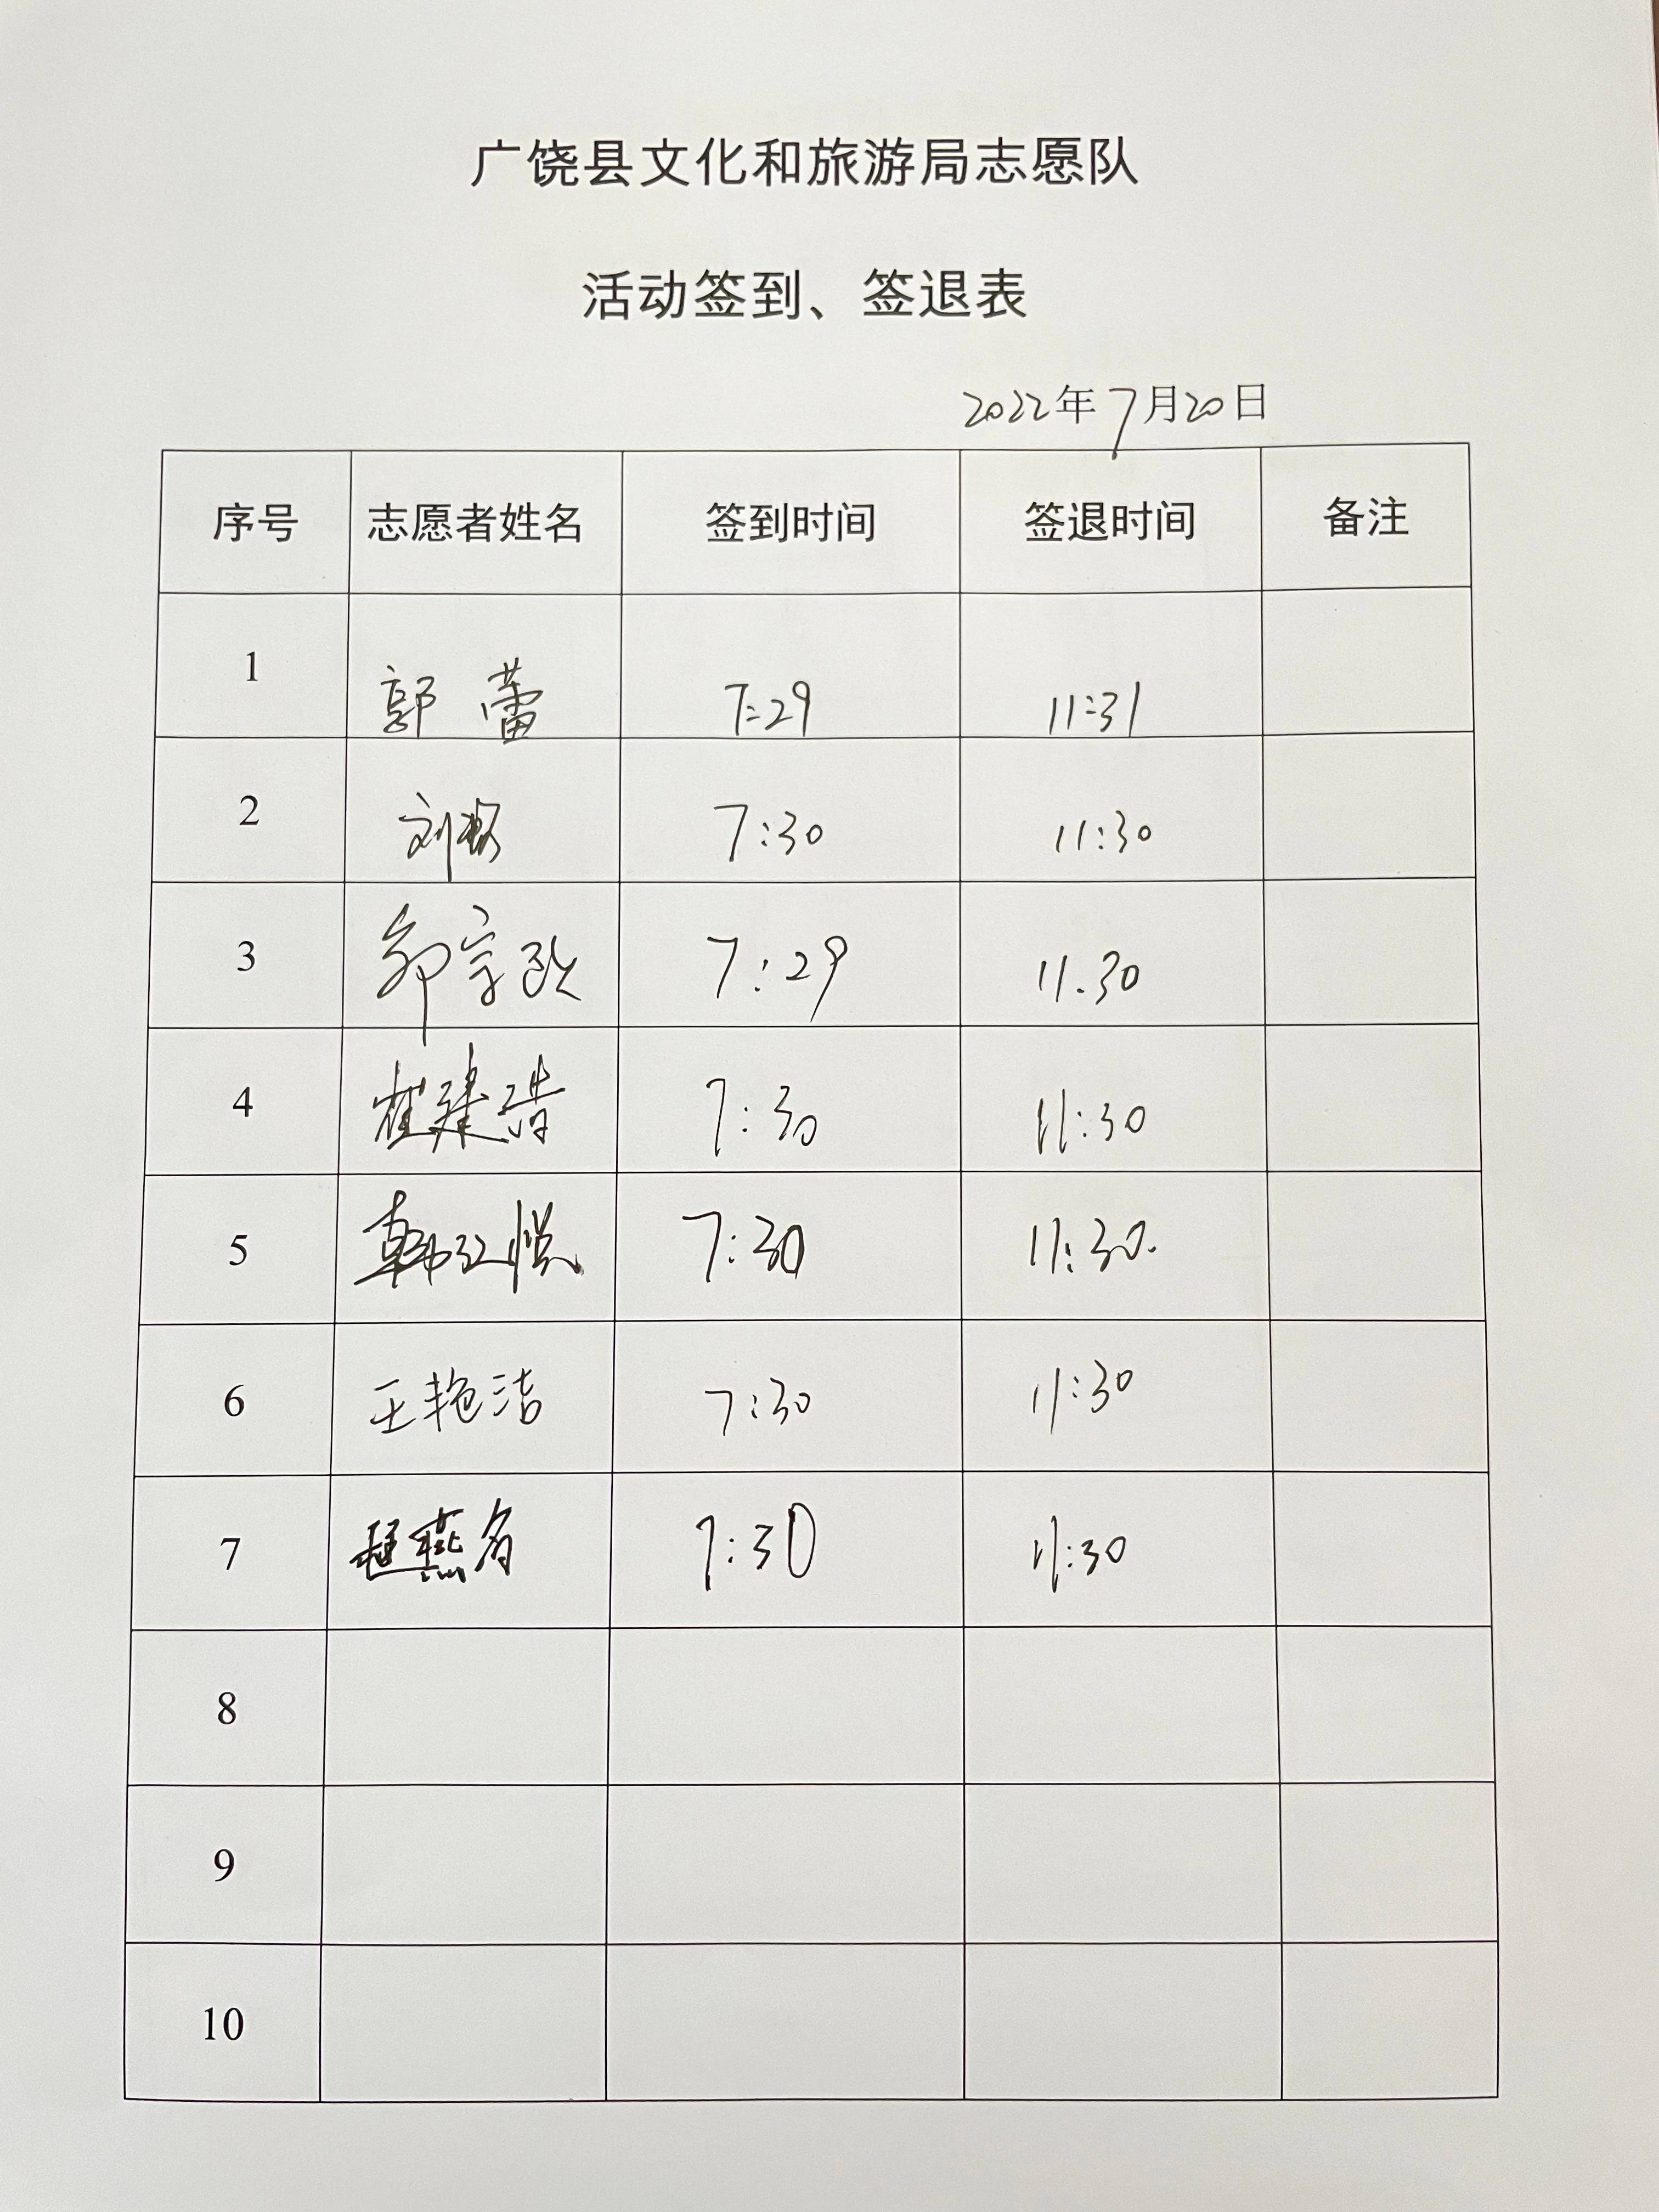 广饶县文化和旅游局志愿队
活动签到、签退表
2022年7月20日
序号 志愿者姓名 签到时间 签退时间 备注
1 郭蕾 7:29 11:31
2 刘 7:30 11:30
3 郭宗政 7:29 11.30
4 崔建浩 7:30 11:30
5 韩红悦 7:30 11:30.
6 王艳洁 7:30 11:30
7 程燕 7:30 11:30
8
9
10